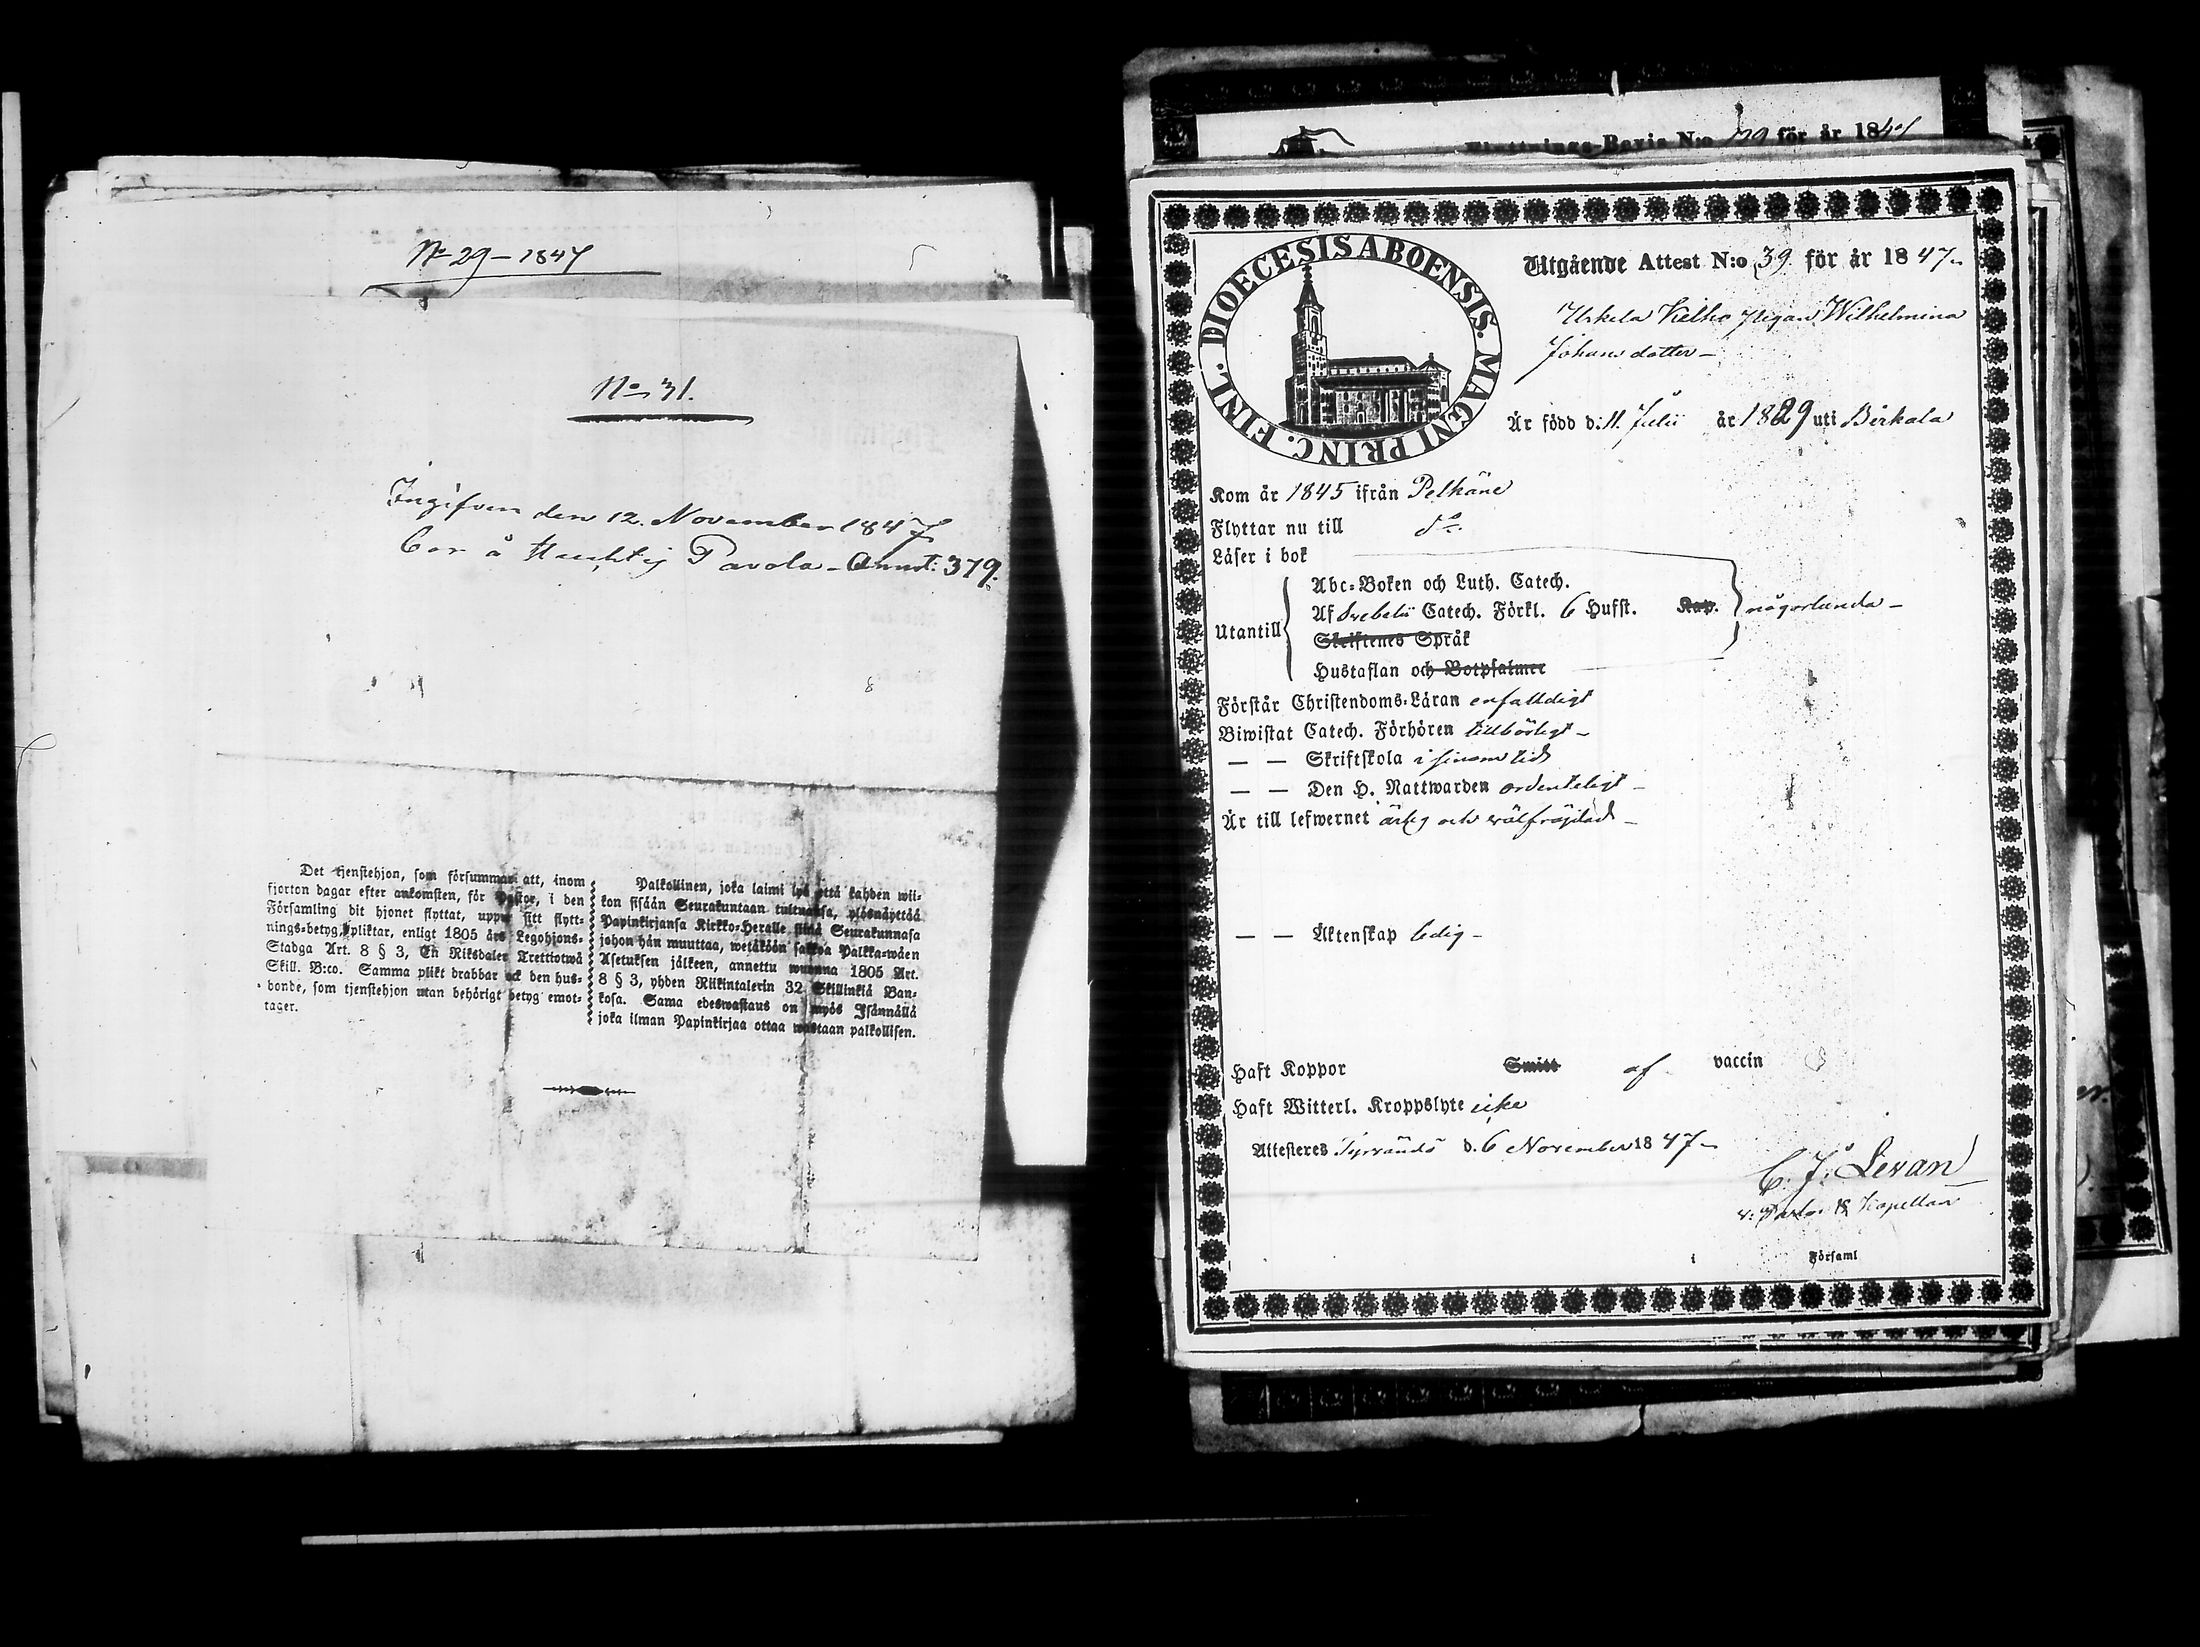 No 29 – 1847
No 31.
Ingifven den 12. November 1847
Bor å Pavola – Annot: 379.
Det tjenstehjon, som försummar att, inom
fjorton dagar efter ankomsten, för Pastor, i den
Församling dit hjonet flyttat, uppte sitt flytt-
nings-betyg, pliktar, enligt 1805 års Legohjons-
Stadga Art. 8 § 3, En Riksdaler Trettiotwå
Skill. B:co. Samma plikt drabbar ock den hus-
bonde, som tjenstehjon utan behörigt betyg emot-
tager.
Palkollinen, joka laimi lyö että kahden wii-
kon sisään Seurakuntaan tultuansa, ylösnäyttää
Papinkirjansa Kirkko-Heralle siinä Seurakunnasa
johon hän muuttaa, wetäköön sakkoa Palkka-wäen
Asetuksen jälkeen, annettu wuonna 1805 Art.
8 § 3, yhden Riikintalerin 32 Skillinkiä Ban-
kosa. Sama edeswastaus on myös Isännällä
joka ilman Papinkirjaa ottaa wastaan palkollisen.
Flyttnings-Bevis N:o 29 för år 1847
DIOECESIS ABOENSIS. MAGNI PRINC. FINL.
Utgående Attest N:o 39 för år 1847
Pigan Wilhelmina
Johansdotter –
Är född d. 11. Julii år 1829 uti Birkala
Kom år 1845 ifrån Pelkäne
Flyttar nu till do
Läser i bok
Abc-Boken och Luth. Catech.
Utantill Af Svebelii Catech. Förkl. 6 Hufst. Kap. någorlunda –
Skriftenes Språk
Hustaflan och Botpsalmer
Förstår Christendoms-Läran enfaldigt
Biwistat Catech. Förhören tillbörligt –
— — Skriftskola i sinom tid
— — Den H. Nattwarden ordenteligt –
Är till lefwernet ärlig och välfräjdad –
— — Äktenskap ledig –
Haft Koppor Smitt af vaccin
Haft Witterl. Kroppslyte icke
Attesteres Tyrvändö d. 6 November 1847 –
C. J. Levan
v. Pastor & Kapellan
i Församl